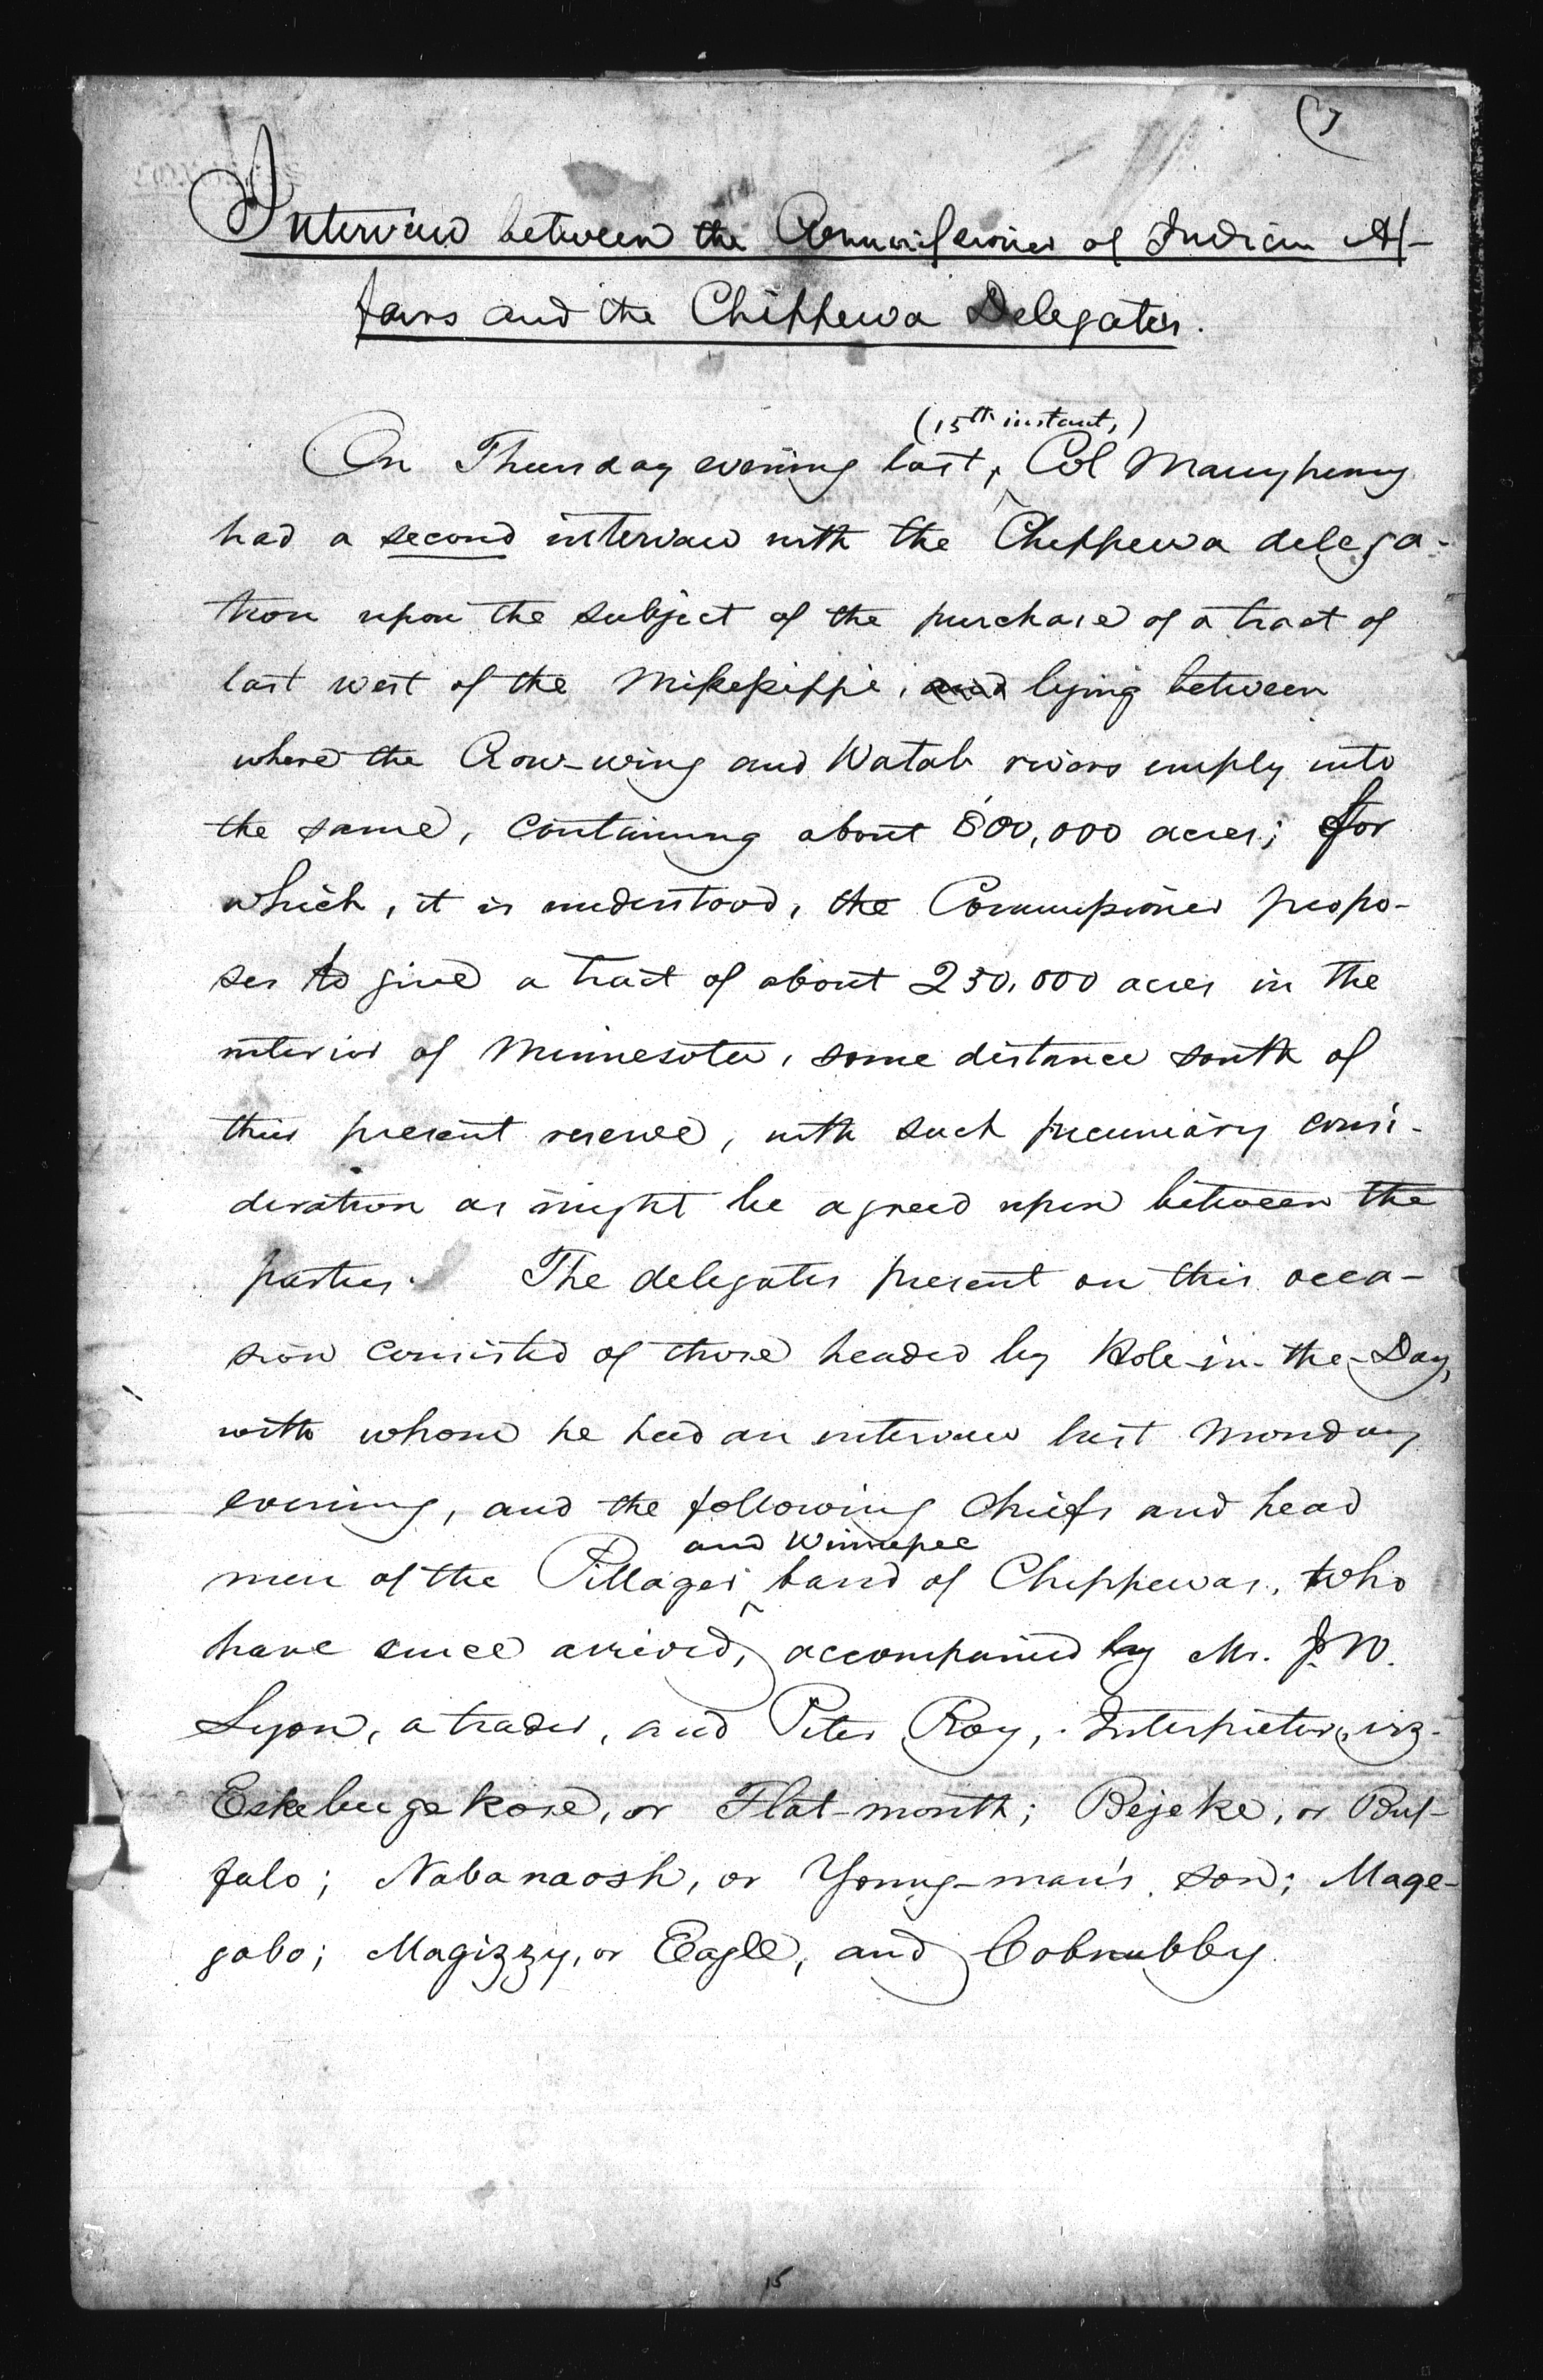 Interview between the Commissioner of Indian Af-
fairs and the Chippewa Delegates.
(15th instant,)
On Thursday evening last, Col Manypenny
had a second interview with the Chippewa delega-
tion upon the subject of the purchase of a tract of
last west of the Mississippi, and lying between
where the Crow-wing and Watab rivers empty into
the same, containing about 800,000 acres; for
which, it is understood, the Commissioner propo-
ses to give a tract of about 250,000 acres in the
interior of Minnesota, some distance south of
their present reserve, with such pecuniary consi-
deration as might be agreed upon between the
parties. The delegates present on this occa-
sion consisted of those headed by Hole-in-the-Day,
with whom he had an interview last Monday
evening, and the following chiefs and head
and Winnepee
men of the Pillager band of Chippewas, who
have since arrived, accompanied by Mr. J. W.
Lyon, a trader, and Peter Roy, Interpreter, viz-
Eskebugekose, or Flat-mouth; Bejeke, or Buf-
falo; Nabanaosh, or Young-man's son; Mage-
gabo; Magizzy, or Eagle, and Cobnubby.
15